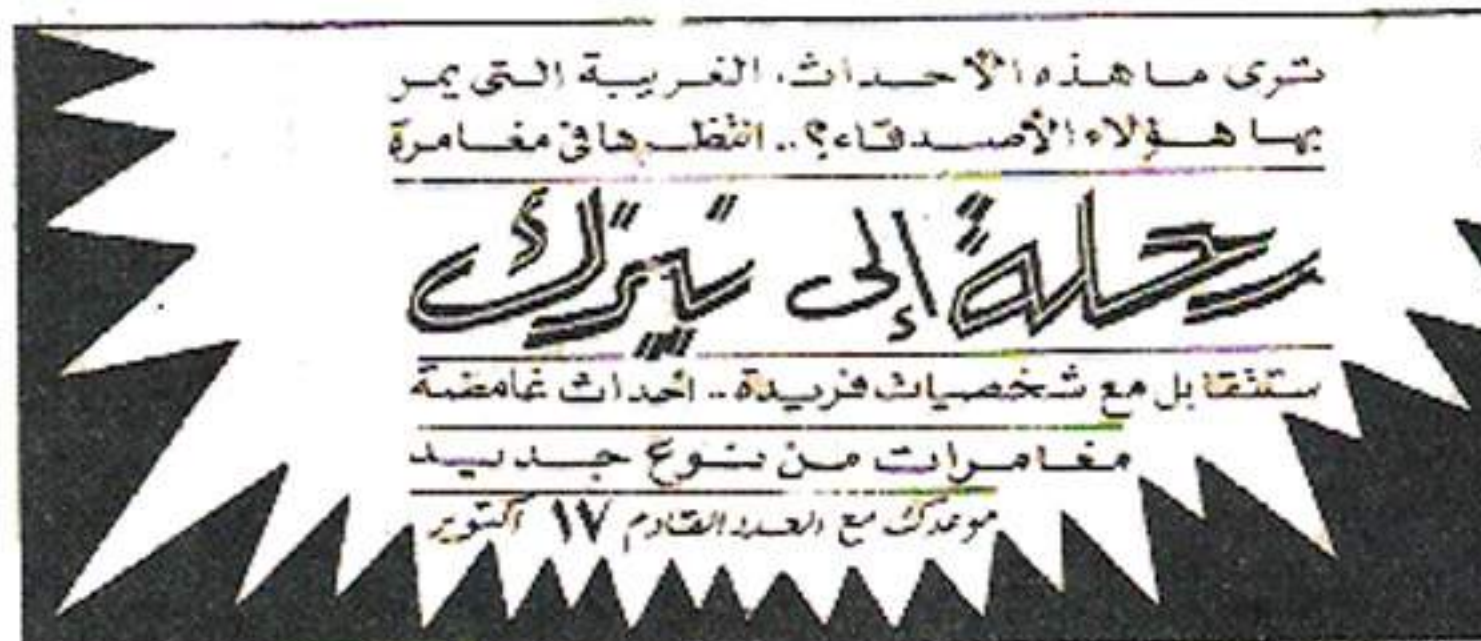 ترى ما هذه الأحداث الغريبة التى يمر
بها هؤلاء الأصدقاء؟.. انتظرها فى مغامرة
رحلة إلى
ستتقابل مع شخصيات فريدة.. أحداث غامضة
مغامرات من نوع جديد
موعدك مع العدد القادم ١٧ أكتوبر